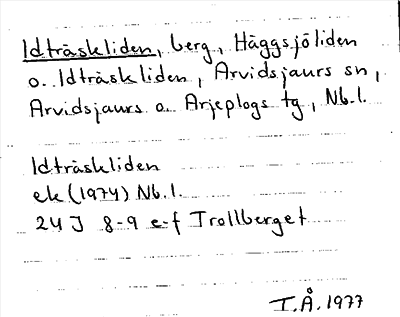 Idträskliden, berg, Häggsjöliden
o. Idträskliden, Arvidsjaurs sn,
Arvidsjaurs o. Arjeplogs tg, Nb.l.
Idträskliden
ek (1974) Nb.l.
24 J 8-9 e-f Trollberget
I.Å. 1977